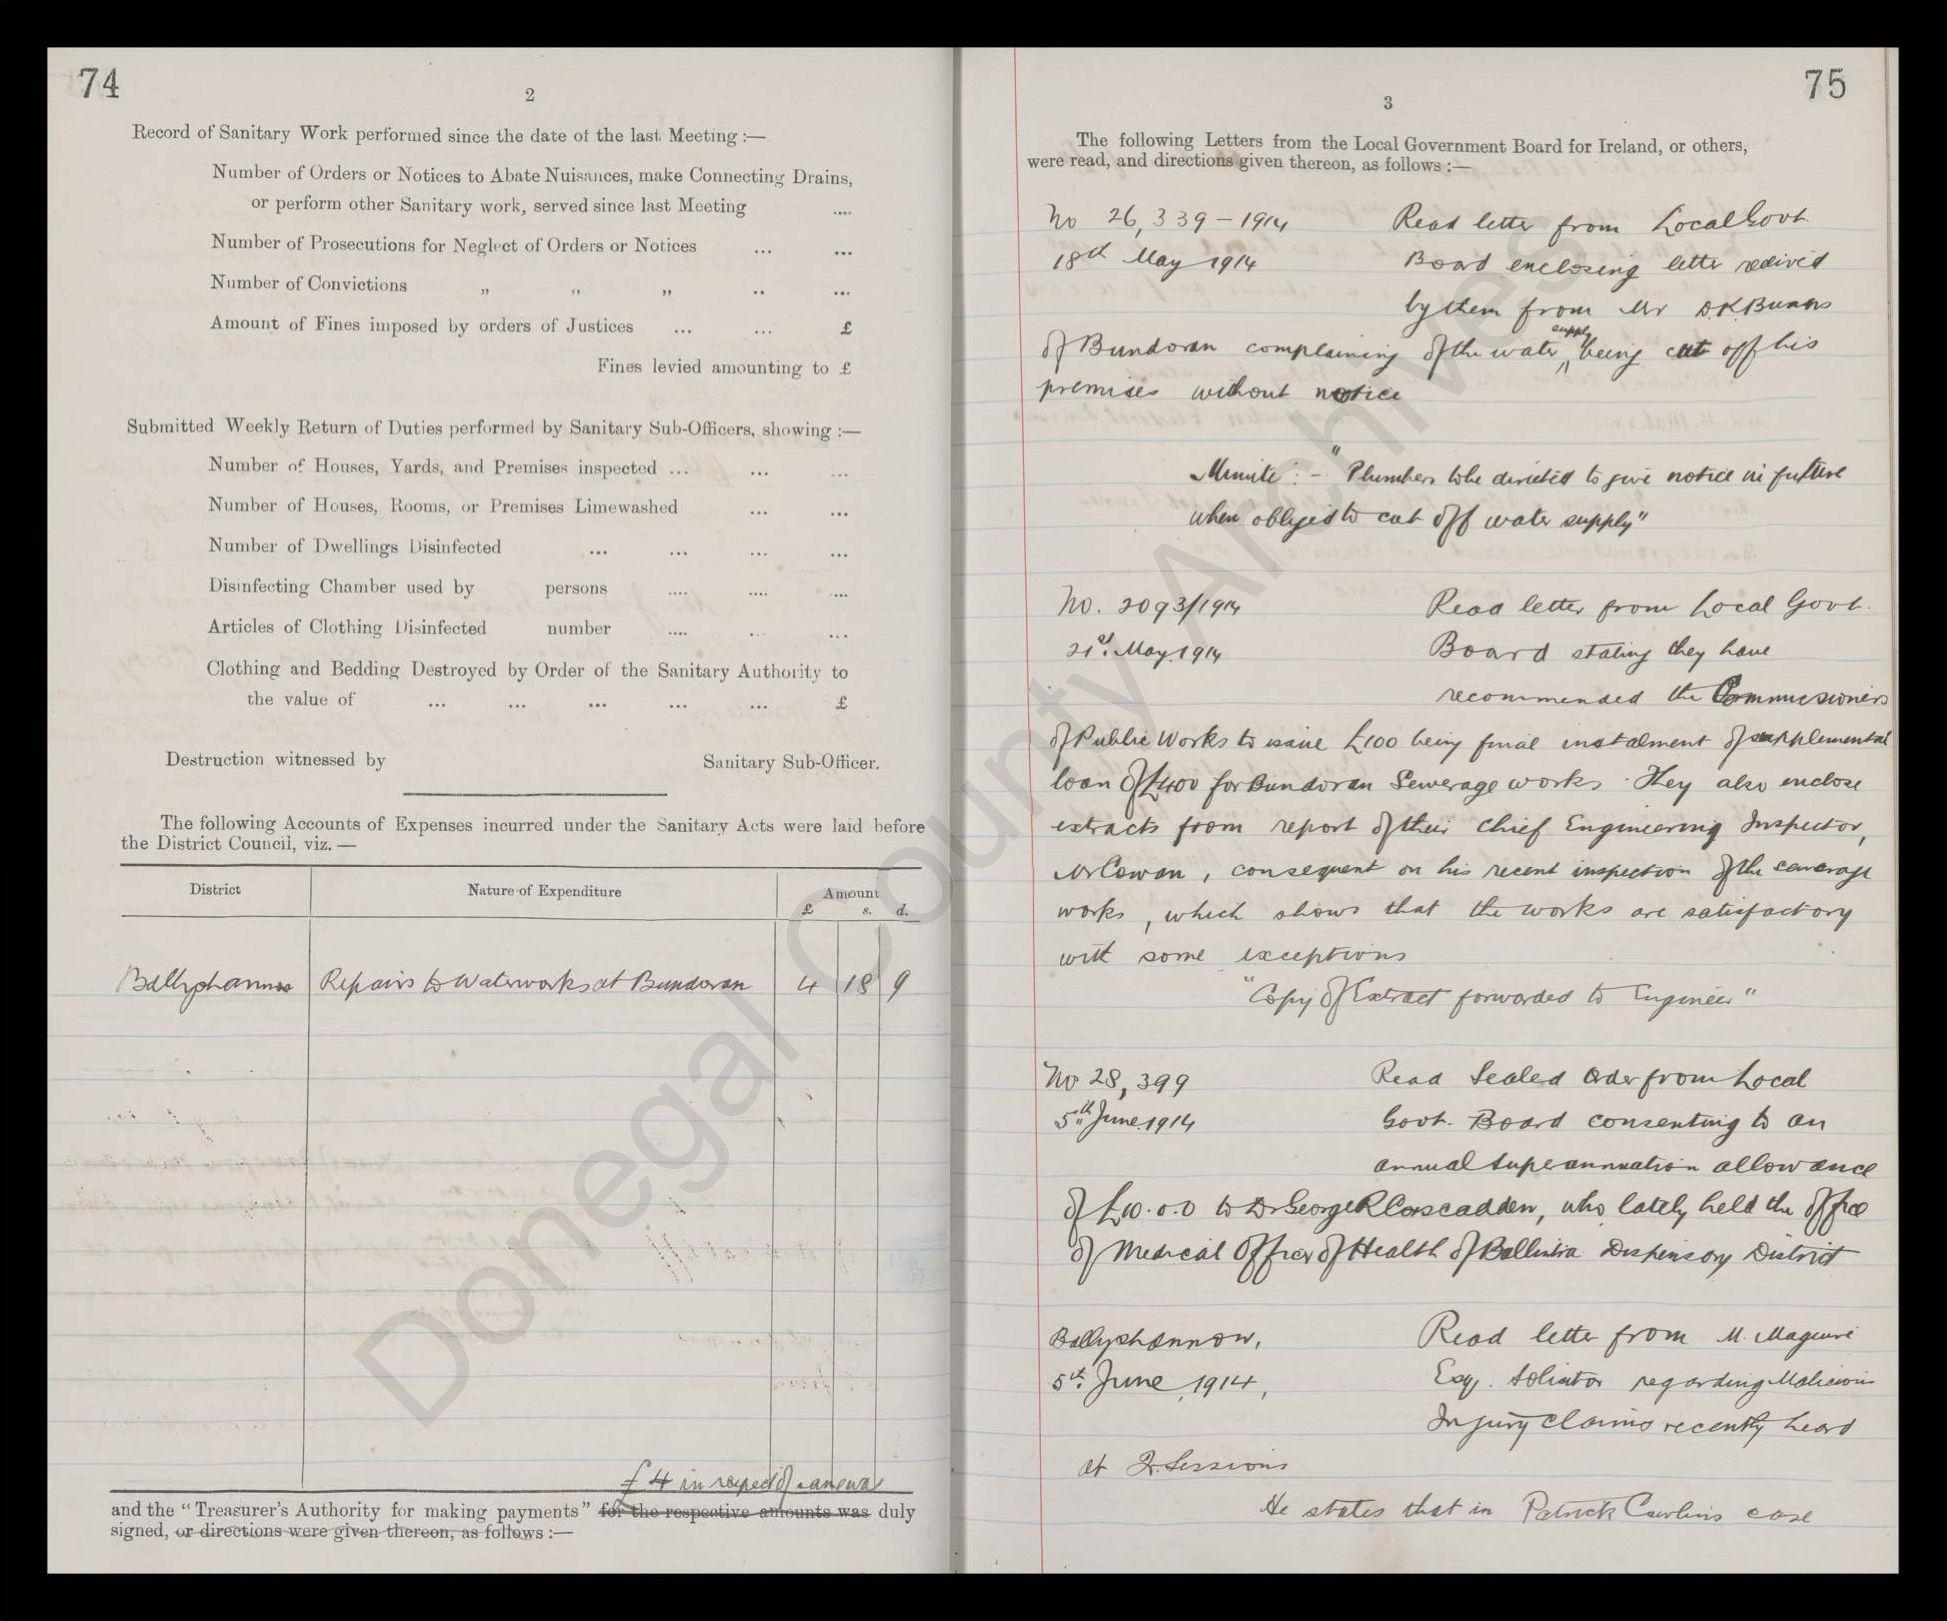 74
2
Record of Sanitary Work performed since the date of the last Meeting :—
Number of Orders or Notices to Abate Nuisances, make Connecting Drains,
or perform other Sanitary work, served since last Meeting ....
Number of Prosecutions for Neglect of Orders or Notices ... ...
Number of Convictions „ „ „ .. ...
Amount of Fines imposed by orders of Justices ... ... £
Fines levied amounting to £
Submitted Weekly Return of Duties performed by Sanitary Sub-Officers, showing :—
Number of Houses, Yards, and Premises inspected ... ... ...
Number of Houses, Rooms, or Premises Limewashed ... ...
Number of Dwellings Disinfected ... ... ... ...
Disinfecting Chamber used by persons .... .... ....
Articles of Clothing Disinfected number .... . ...
Clothing and Bedding Destroyed by Order of the Sanitary Authority to
the value of ... ... ... ... ... £
Destruction witnessed by Sanitary Sub-Officer.
The following Accounts of Expenses incurred under the Sanitary Acts were laid before
the District Council, viz. —
District Nature of Expenditure Amount
£ s. d.
Ballyshannon Repairs to Waterworks at Bundoran 4 18 9
£4 in respect of
and the "Treasurer's Authority for making payments" for the respective amounts was duly
signed, or directions were given thereon, as follows :—
75
3
The following Letters from the Local Government Board for Ireland, or others,
were read, and directions given thereon, as follows :—
No 26,339-1914 Read letter from Local Govt.
18th May 1914 Board enclosing letter received
by them from Mr D.K.
of Bundoran complaining of the water supply being cut off his
premises without notice
Minute :- "Plumbers to be directed to give notice in future
when obliged to cut off water supply"
No. 2093/1914 Read letter from Local Govt.
21st. May 1914 Board stating they have
recommended the Commissioners
of Public Works to issue £100 being final instalment of supplemental
loan of £400 for Bundoran Sewerage works. They also enclose
extracts from report of their Chief Engineering Inspector,
Mr Cowan, consequent on his recent inspection of the sewerage
works, which shows that the works are satisfactory
with some exceptions
"Copy of Extract forwarded to Engineer"
No 28,399 Read Sealed Order from Local
5th June 1914 Govt. Board consenting to an
annual superannuation allowance
of £10.0.0 to Dr George R Cascadden, who lately held the office
of Medical Officer of Health of Ballintra Dispensary District
Ballyshannon, Read letter from M. Maguire
5th. June, 1914, Esq. Solicitor regarding Malicious
Injury Claims recently heard
at Qr. Sessions
He states that in Patrick case
Donegal County Archives